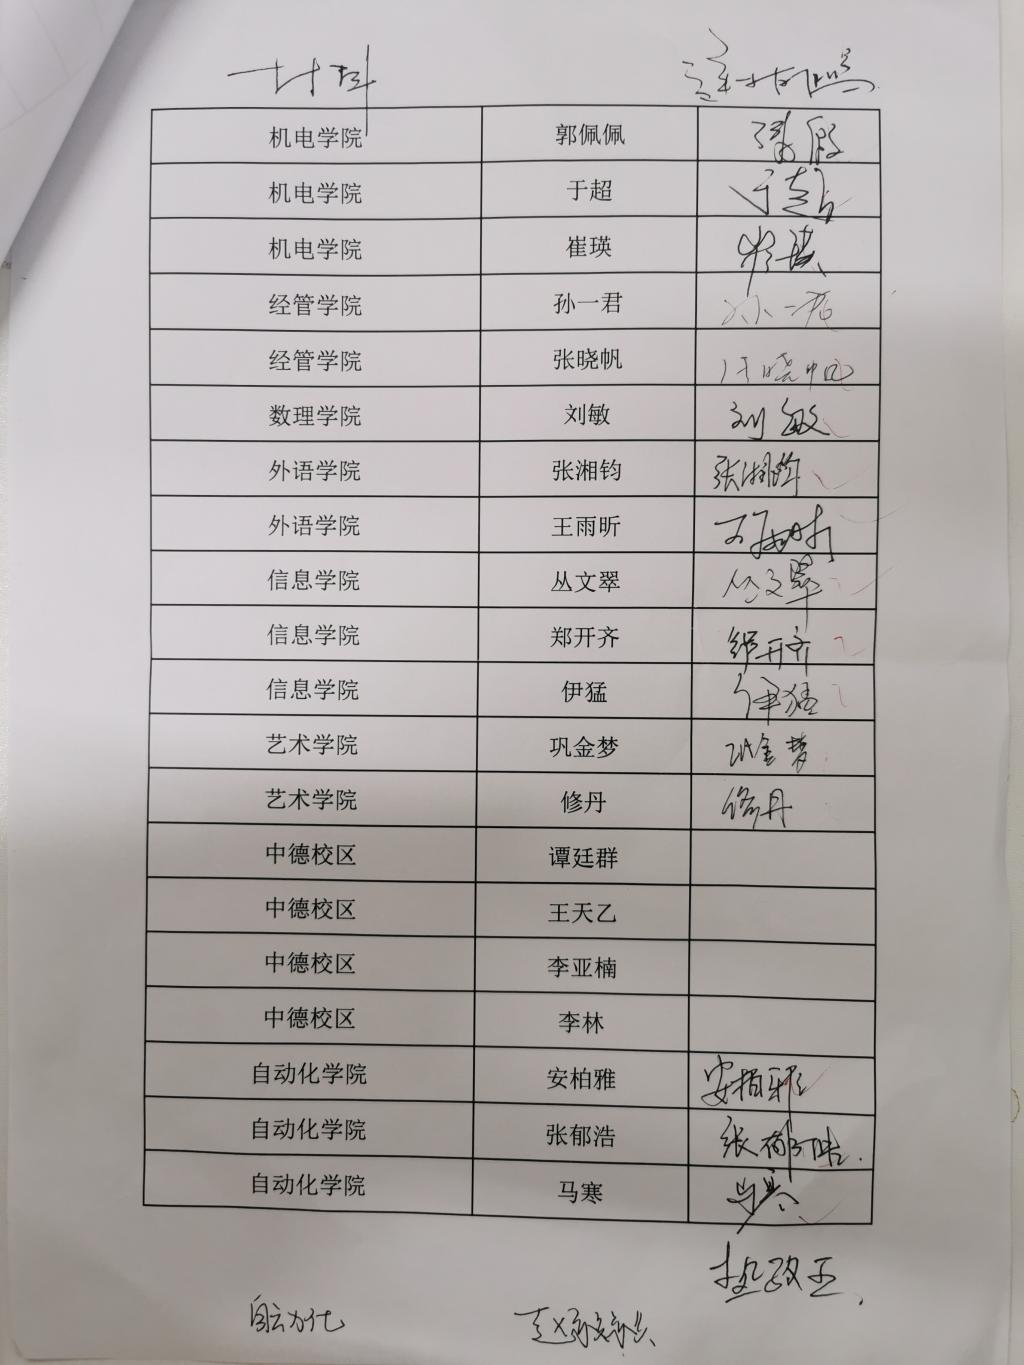 计科
机电学院 郭佩佩
机电学院 于超 于超
机电学院 崔瑛 崔瑛
经管学院 孙一君 孙一君
经管学院 张晓帆 张晓帆
数理学院 刘敏 刘敏
外语学院 张湘钧 张湘钧
外语学院 王雨昕 王雨昕
信息学院 丛文翠 丛文翠
信息学院 郑开齐 郑开齐
信息学院 伊猛 伊猛
艺术学院 巩金梦 巩金梦
艺术学院 修丹 修丹
中德校区 谭廷群
中德校区 王天乙
中德校区 李亚楠
中德校区 李林
自动化学院 安柏雅 安柏雅
自动化学院 张郁浩 张郁浩
自动化学院 马寒 马寒
自动化